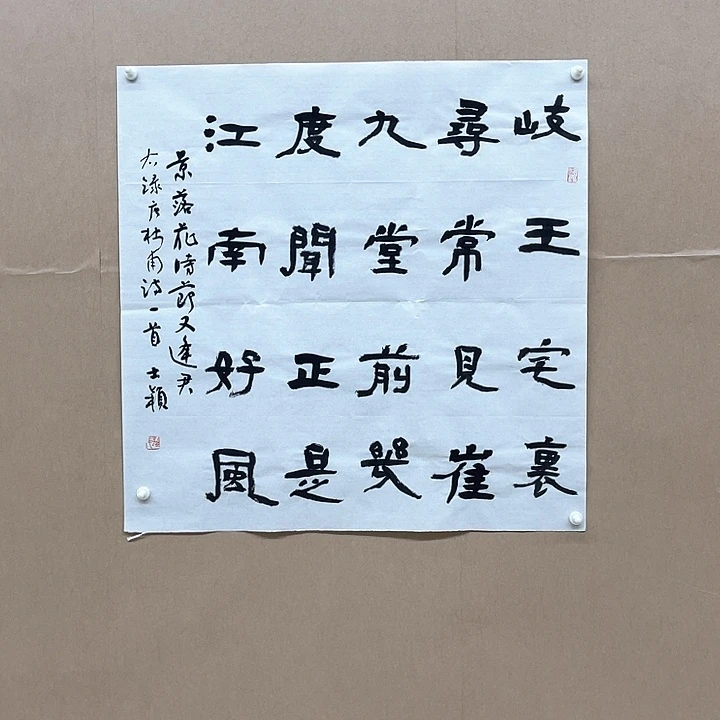 岐王宅裏
尋常見崔
九堂前幾
度聞正是
江南好風
景落花時節又逢君
右錄唐杜甫詩一首 士穎